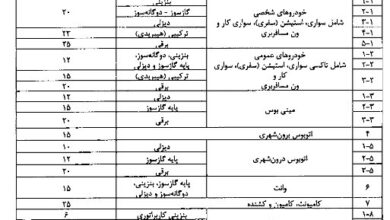 بنزینی
۱-۱
خودروهای شخصی
شامل سواری، استیشن (سفری)، سواری کار و
ون مسافربری
گازسوز - دوگانه‌سوز
۲۰
۲-۱
دیزلی
۳-۱
ترکیبی (هیبریدی)
۲۲
۴-۱
برقی
۲۵
۵-۱
خودروهای عمومی
شامل تاکسی سواری، استیشن (سفری)، سواری
کار و
ون مسافربری
بنزینی، دوگانه‌سوز،
پایه گازسوز و دیزلی
۱۲
۱-۲
ترکیبی (هیبریدی)
۱۵
۲-۲
برقی
۲۰
مینی بوس
دیزلی
۱۲
۱-۳
پایه گازسوز
۱۵
۲-۳
برقی
۲۰
۳-۳
اتوبوس برون‌شهری
۱۵
۴
اتوبوس درون‌شهری
دیزلی
۱۰
۱-۵
پایه گازسوز
۱۲
۲-۵
برقی
۲۰
۳-۵
وانت
پایه گازسوز، بنزینی،
دوگانه‌سوز و دیزلی
۱۵
۶
کامیونت، کامیون و کشنده
۲۵
۷
بنزینی کاربراتوری
۶
۱-۸